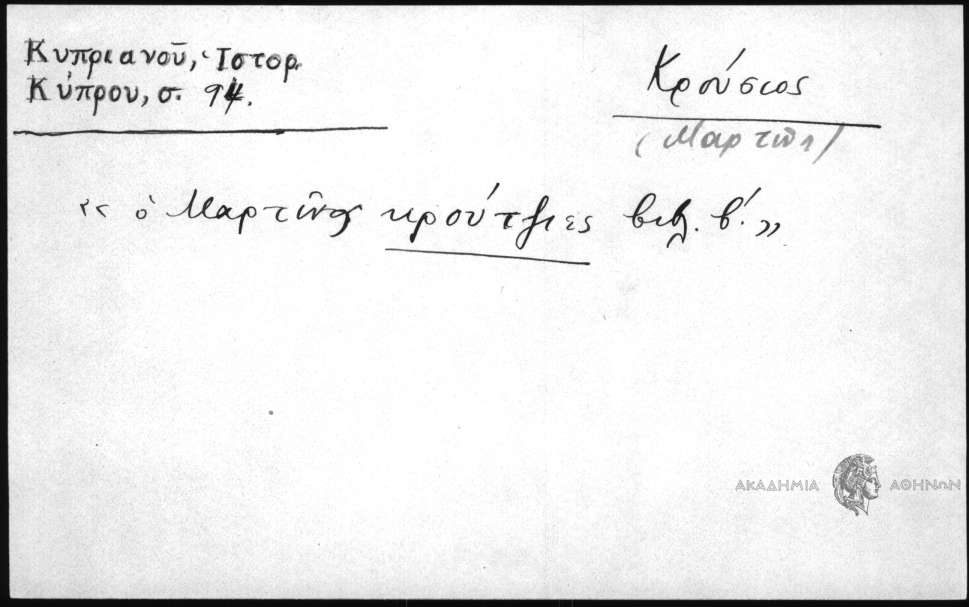 Κυπριανοῦ, Ἱστορ.
Κύπρου, σ. 94.
Κρούσιος
(Μαρτῖν)
«ὁ Μαρτῖνος κρούτζιες βιβλ. β΄.»
ΑΚΑΔΗΜΙΑ ΑΘΗΝΩΝ